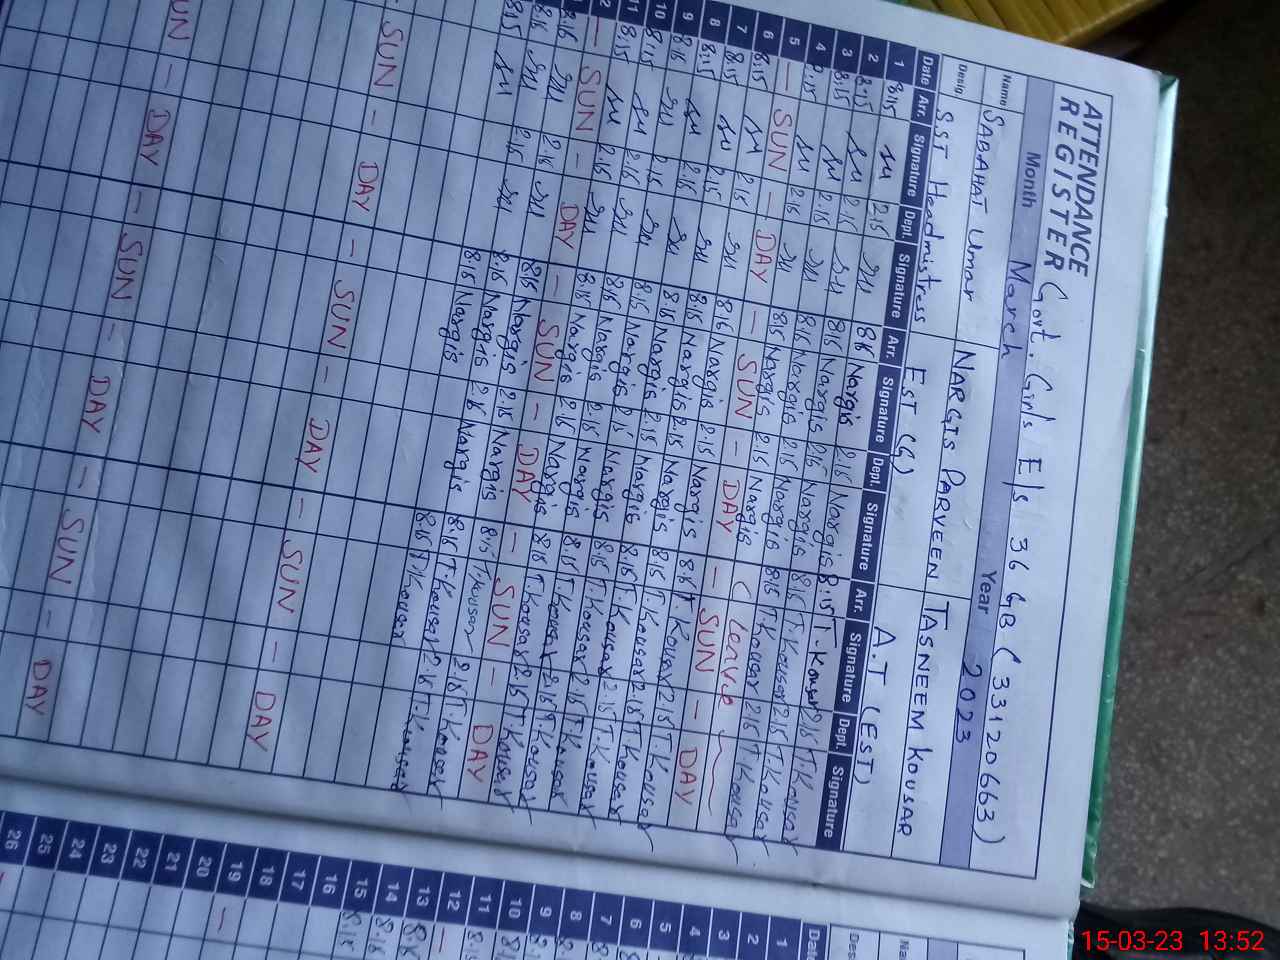 ATTENDANCE REGISTER Govt. Girls E/s 36 GB (33120663)
Month March Year 2023
Name SABAHAT Umar NARGIS PARVEEN TASNEEM KOUSAR
Desig SST Headmistress EST (G) A.T (EST)
Date Arr. Signature Dept. Signature Arr. Signature Dept. Signature Arr. Signature Dept. Signature
1 8:15 2:15 8:15 Nargis 2:15 Nargis 8:15 T.Kousar 2:15 T.Kousar
2 8:15 2:15 8:15 Nargis 2:15 Nargis 8:15 T.Kousar 2:15 T.Kousar
3 8:15 2:15 8:15 Nargis 2:15 Nargis 8:15 T.Kousar 2:15 T.Kousar
4 8:15 2:15 8:15 Nargis 2:15 Nargis (Leave
5 — SUN — DAY — SUN — DAY — SUN — DAY
6 8:15 2:15 8:15 Nargis 2:15 Nargis 8:15 T.Kousar 2:15 T.Kousar
7 8:15 2:15 8:15 Nargis 2:15 Nargis 8:15 T.Kousar 2:15 T.Kousar
8 8:15 2:15 8:15 Nargis 2:15 Nargis 8:15 T.Kousar 2:15 T.Kousar
9 8:15 2:15 8:15 Nargis 2:15 Nargis 8:15 T.Kousar 2:15 T.Kousar
10 8:15 2:15 8:15 Nargis 2:15 Nargis 8:15 T.Kousar 2:15 T.Kousar
11 8:15 2:15 8:15 Nargis 2:15 Nargis 8:15 T.Kousar 2:15 T.Kousar
— SUN — DAY — SUN — DAY — SUN — DAY
8:15 2:15 8:15 Nargis 2:15 Nargis 8:15 T.Kousar 2:15 T.Kousar
8:15 2:15 8:15 Nargis 2:15 Nargis 8:15 T.Kousar 2:15 T.Kousar
8:15 Nargis 2:15 Nargis 8:15 T.Kousar 2:15 T.Kousar
SUN — DAY — SUN — DAY — SUN — DAY
SUN — DAY — SUN — DAY — SUN — DAY
1
2
3
4
5
6
7
8
9
10
11
12
13
14
15
16
17
18
19
20
21
22
23
24
25
26
15-03-23 13:52